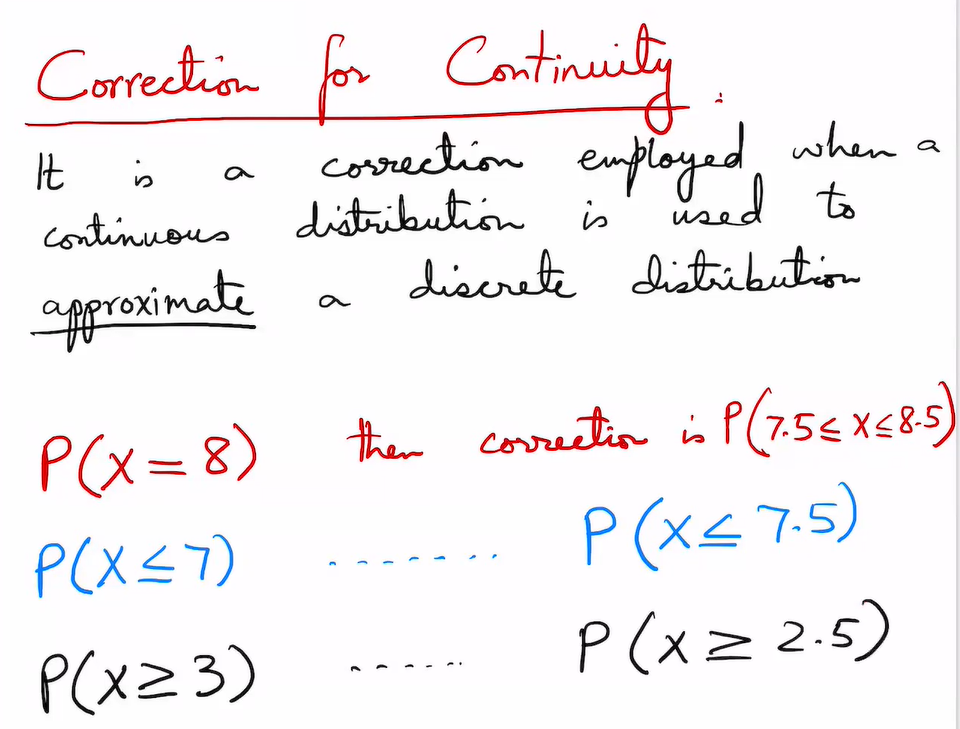 Correction for Continuity :
It is a correction employed when a
continuous distribution is used to
approximate a discrete distribution
P(X = 8) then correction is P(7.5 ≤ X ≤ 8.5)
P(X ≤ 7) ........ P(X ≤ 7.5)
P(X ≥ 3) ...... P(X ≥ 2.5)